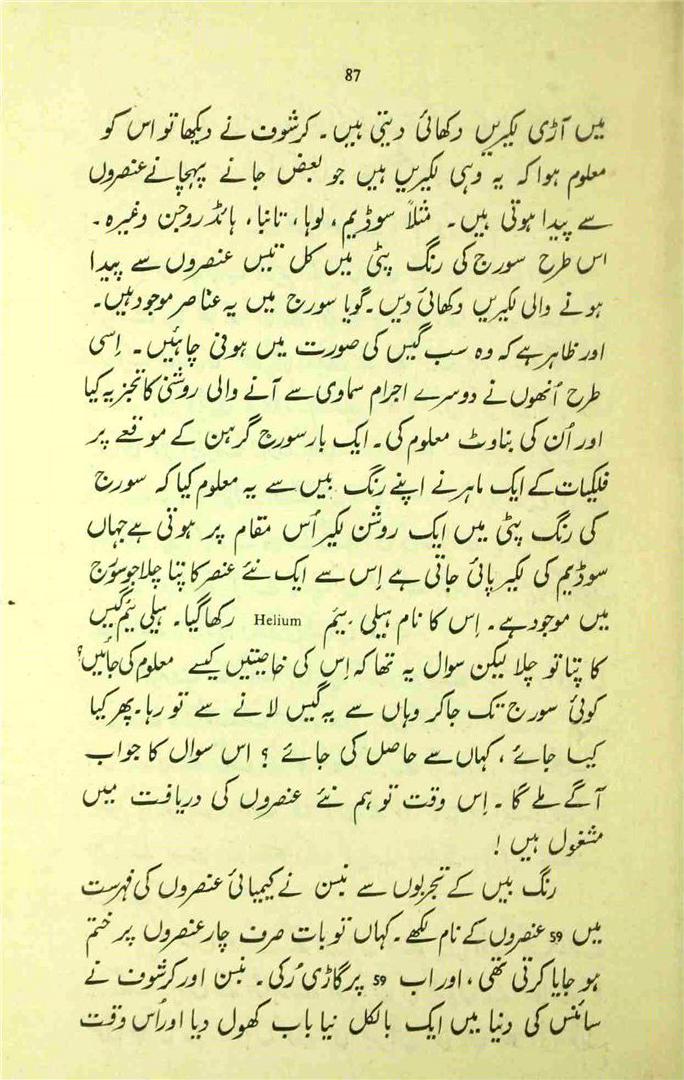 87
میں آڑی لکیریں دکھائی دیتی ہیں۔ کرشوف نے دیکھا تو اس کو
معلوم ہوا کہ یہ وہی لکیریں ہیں جو بعض جانے پہچانے عنصروں
سے پیدا ہوتی ہیں۔ مثلاً سوڈیم، لوہا، تانبا، ہائڈروجن وغیرہ۔
اس طرح سورج کی رنگ پٹی میں کل تیس عنصروں سے پیدا
ہونے والی لکیریں دکھائی دیں۔ گویا سورج میں یہ عناصر موجود ہیں۔
اور ظاہر ہے کہ وہ سب گیس کی صورت میں ہونی چاہئیں۔ اِسی
طرح اُنھوں نے دوسرے اجرام سماوی سے آنے والی روشنی کا تجزیہ کیا
اور اُن کی بناوٹ معلوم کی۔ ایک بار سورج گرہن کے موقعے پر
فلکیات کے ایک ماہر نے اپنے رنگ بیں سے یہ معلوم کیا کہ سورج
کی رنگ پٹی میں ایک روشن لکیر اُس مقام پر ہوتی ہے جہاں
سوڈیم کی لکیر پائی جاتی ہے اِس سے ایک نئے عنصر کا پتا چلا جو سورج
میں موجود ہے۔ اِس کا نام ہیلی یَم Helium رکھا گیا۔ ہیلی یَم گیس
کا پتا تو چلا لیکن سوال یہ تھا کہ اِس کی خاصیتیں کیسے معلوم کی جائیں؟
کوئی سورج تک جا کر وہاں سے یہ گیس لانے سے تو رہا۔ پھر کیا
کیا جائے، کہاں سے حاصل کی جائے ؟ اس سوال کا جواب
آگے ملے گا۔ اِس وقت تو ہم نئے عنصروں کی دریافت میں
مشغول ہیں !
رنگ بیں کے تجربوں سے بنسن نے کیمیائی عنصروں کی فہرست
میں 59 عنصروں کے نام لکھے۔ کہاں تو بات صرف چار عنصروں پر ختم
ہو جایا کرتی تھی، اور اب 59 پر گاڑی رُکی۔ بنسن اور کرشوف نے
سائنس کی دنیا میں ایک بالکل نیا باب کھول دیا اور اُس وقت